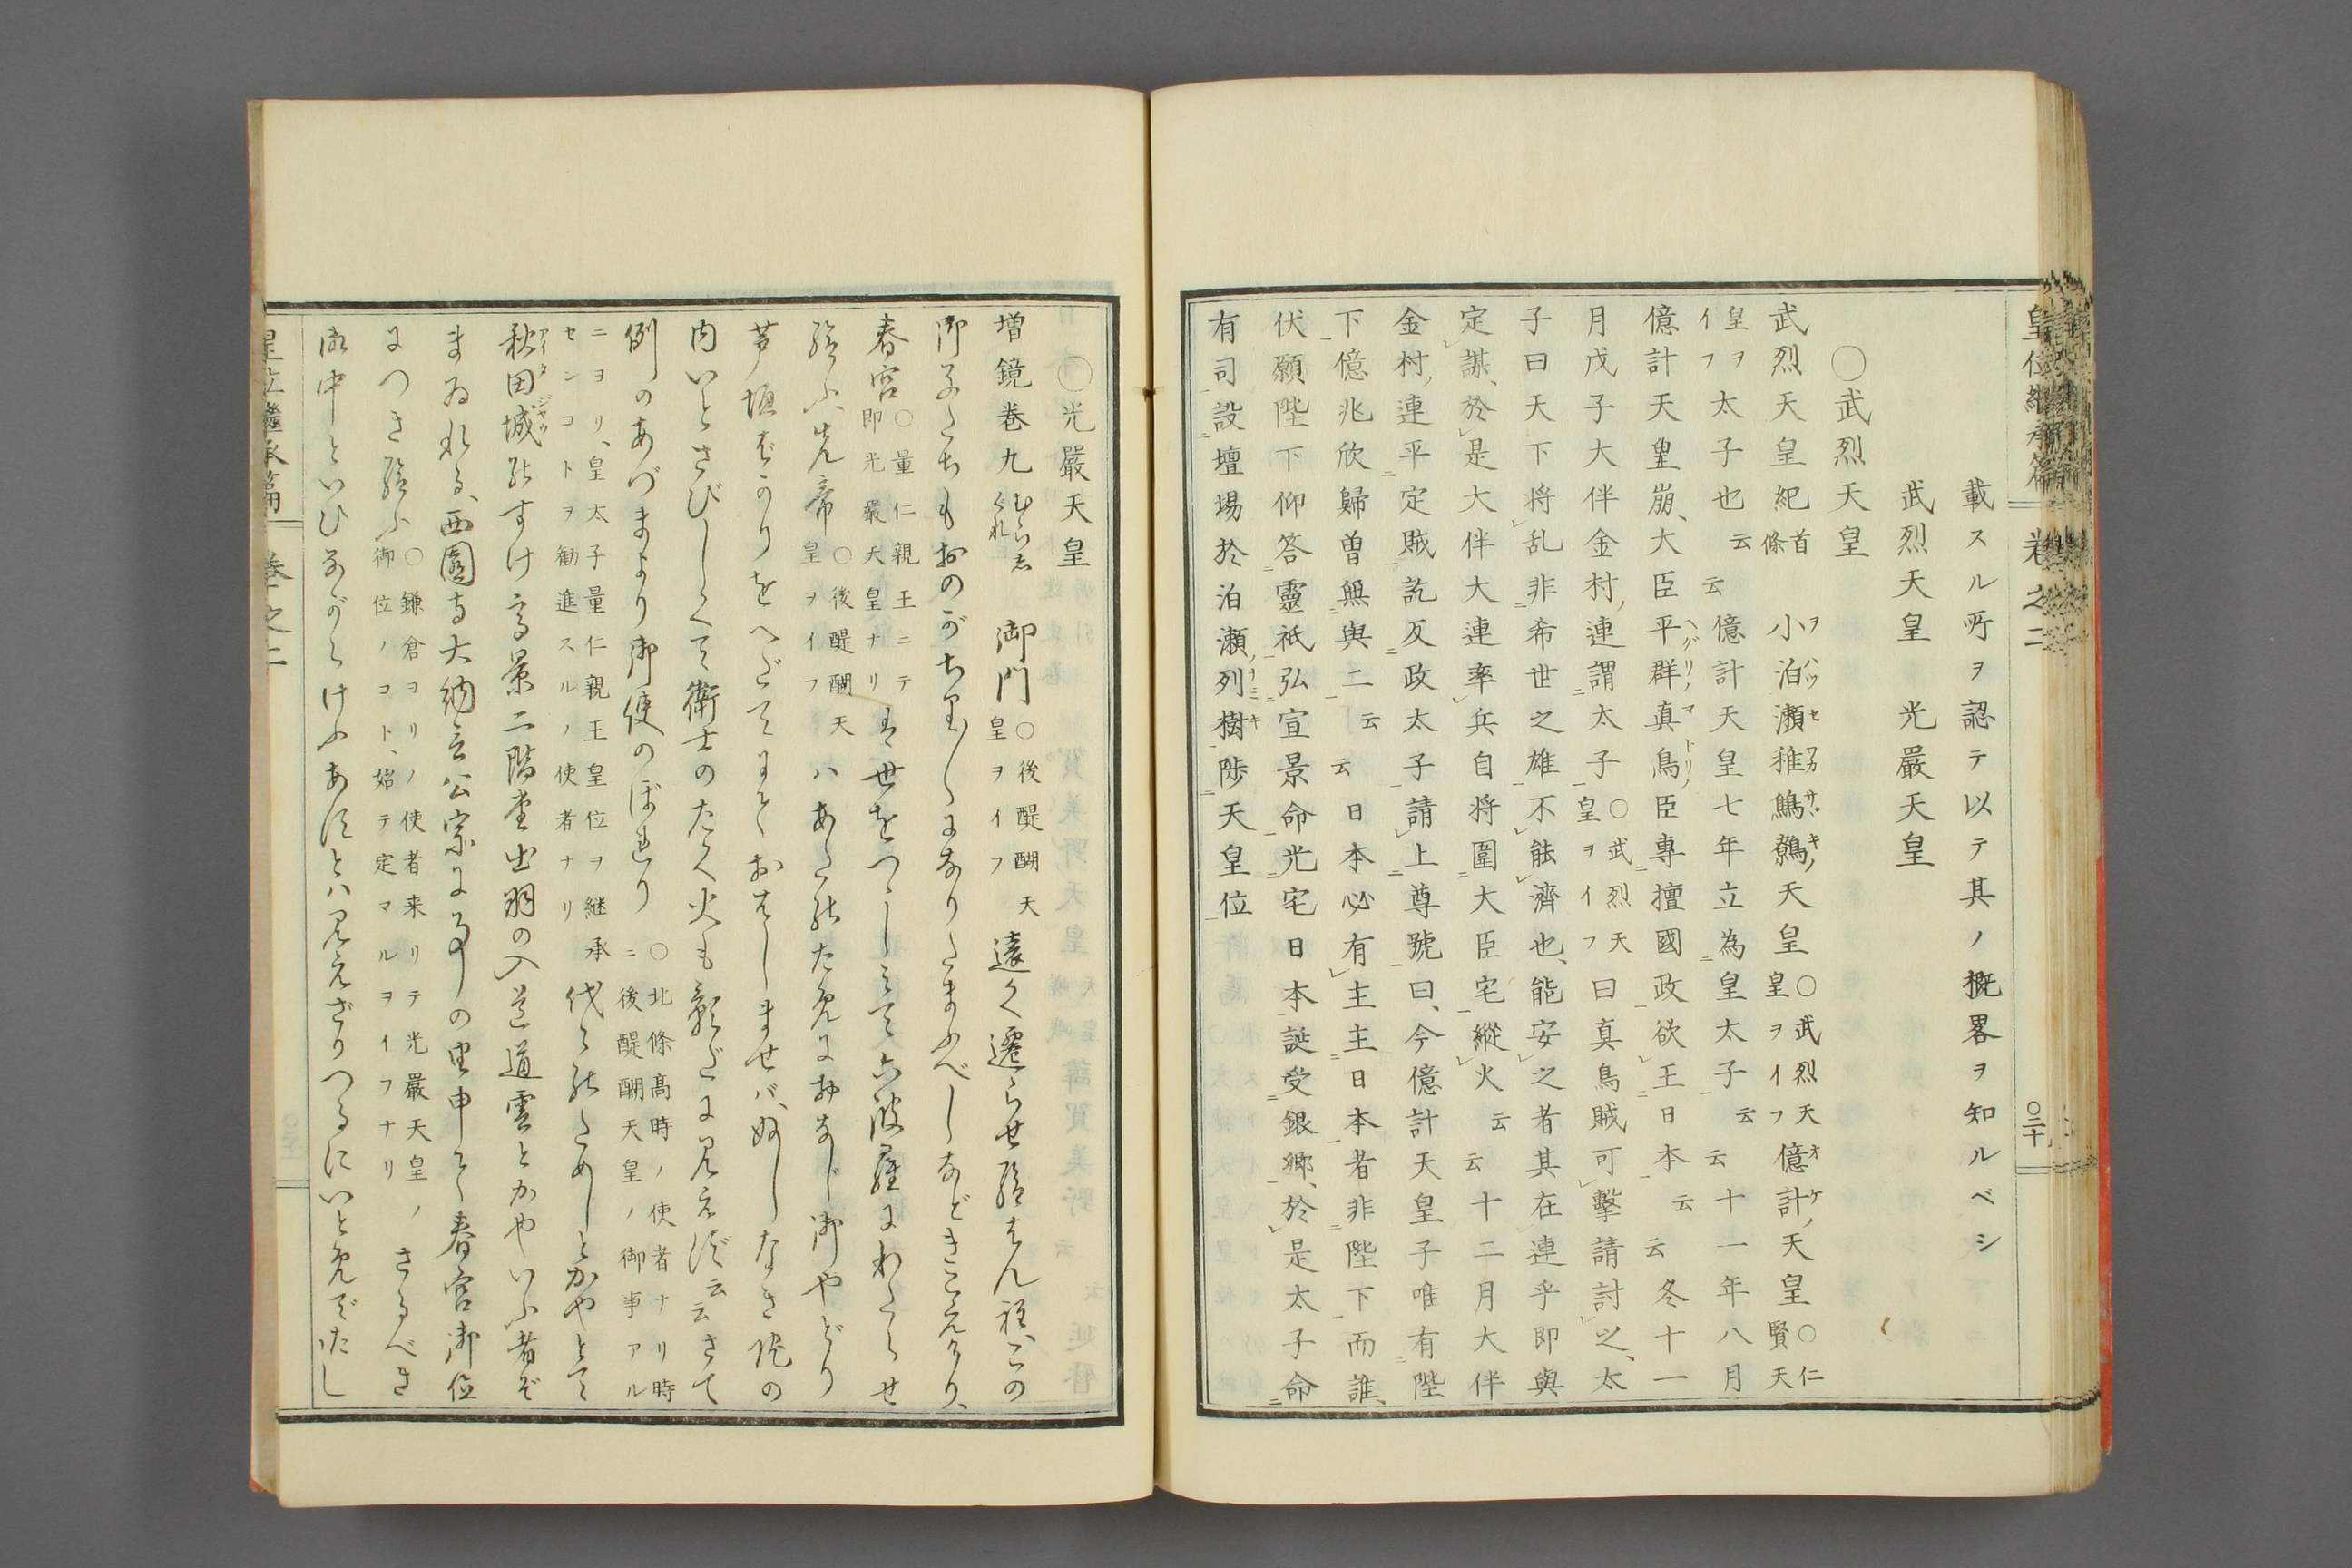 皇位継承篇 巻之二 〇三十
載スル所ヲ認テ以テ其ノ概畧ヲ知ルベシ
武烈天皇 光嚴天皇
〇武烈天皇
武烈天皇紀首條 小泊瀬稚鷦鷯天皇〇武烈天皇ヲイフ億計天皇〇仁賢天
皇ヲイフ太子也云云億計天皇七年立為皇太子云云十一年八月
億計天皇崩、大臣平群真鳥臣專擅國政欲王日本云云冬十一
月戊子大伴金村連謂太子〇武烈天皇ヲイフ曰真鳥賊可擊請討之、太
子曰天下将乱非希世之雄不能濟也、能安之者其在連乎即與
定謀、於是大伴大連率兵自将圍大臣宅縱火云云十二月大伴
金村連平定賊訖反政太子請上尊號曰、今億計天皇子唯有陛
下億兆欣歸曽無與二云云日本必有主主日本者非陛下而誰、
伏願陛下仰答靈祇弘宣景命光宅日本誕受銀郷、於是太子命
有司設壇場於泊瀬列樹陟天皇位
〇光嚴天皇
増鏡巻九むら志ぐれ 御門〇後醍醐天皇ヲイフ遠く遷らせ給はん程、この
御子たちもおのがちりぢりになりたまふべしなどきこえけり、
春宮〇量仁親王ニテ即光嚴天皇ナリ は世をつゝしみて六波羅にわたらせ
給ふ、先帝〇後醍醐天皇ヲイフハあたれたにおなじ御やどり
芦垣ばかりをへだてにておはしませバ、ぬしなき院の
内いとさびしくて衛士のたく火も影だに見えず云云さて
例のあづまより御使のぼれり〇北條高時ノ使者ナリ時ニ後醍醐天皇ノ御事アル
ニヨリ、皇太子量仁親王皇位ヲ継承センコトヲ勧進スルノ使者ナリ代々のためしとかやとて
秋田城のすけ高景二階堂出羽の入道道雲とかやいふ者ぞ
まゐれる、西園寺大納言公宗に事の由申て春宮御位
につき給ふ〇鎌倉ヨリノ使者来リテ光嚴天皇ノ御位ノコト、始テ定マルヲイフナリ さるべき
御中といひながらけふあすとハ見えざりつるにいとめでたし
皇位継承篇 巻之二